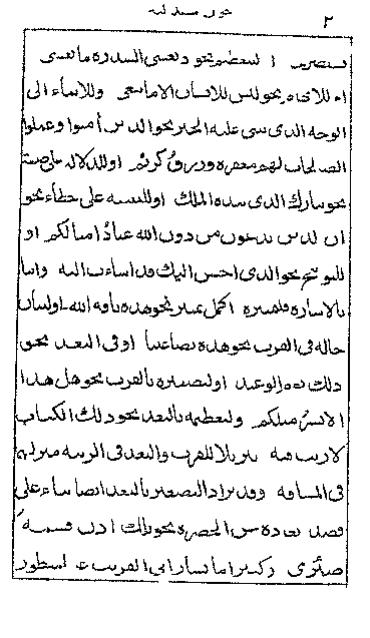 ٢
لتعظيم نحو يغشى السدرة ما يغشى
نحو ليس للانسان الا ما سعى وللايماء الى
الوجه الذى بنى عليه الخبر نحو الذين آمنوا وعملوا
الصالحات لهم مغفرة ورزق كريم او للدلالة على صفة
نحو تبارك الذى بيده الملك او للتنبيه على خطاء نحو
ان الذين تدعون من دون الله عباد امثالكم او
للتوبيخ نحو الذى احسن اليك قد اساءت اليه واما
بالاشارة فلتميزه اكمل تميز نحو هذه ناقة الله او لبيان
حاله فى القرب نحو هذه بضاعتنا او فى البعد نحو
ذلك يوم الوعيد او لتصغيره بالقرب نحو هل هذا
الا بشر مثلكم ولتعظيمه بالبعد نحو ذلك الكتاب
لا ريب فيه تنزيلا للقرب والبعد فى الرتبة منزلته
فى المسافة وقد يراد التصغير بالبعد ايضا بناء على
قصد بعده من الحضرة نحو تلك اذن قسمة
ضيزى وكثيرا ما يشار الى القريب